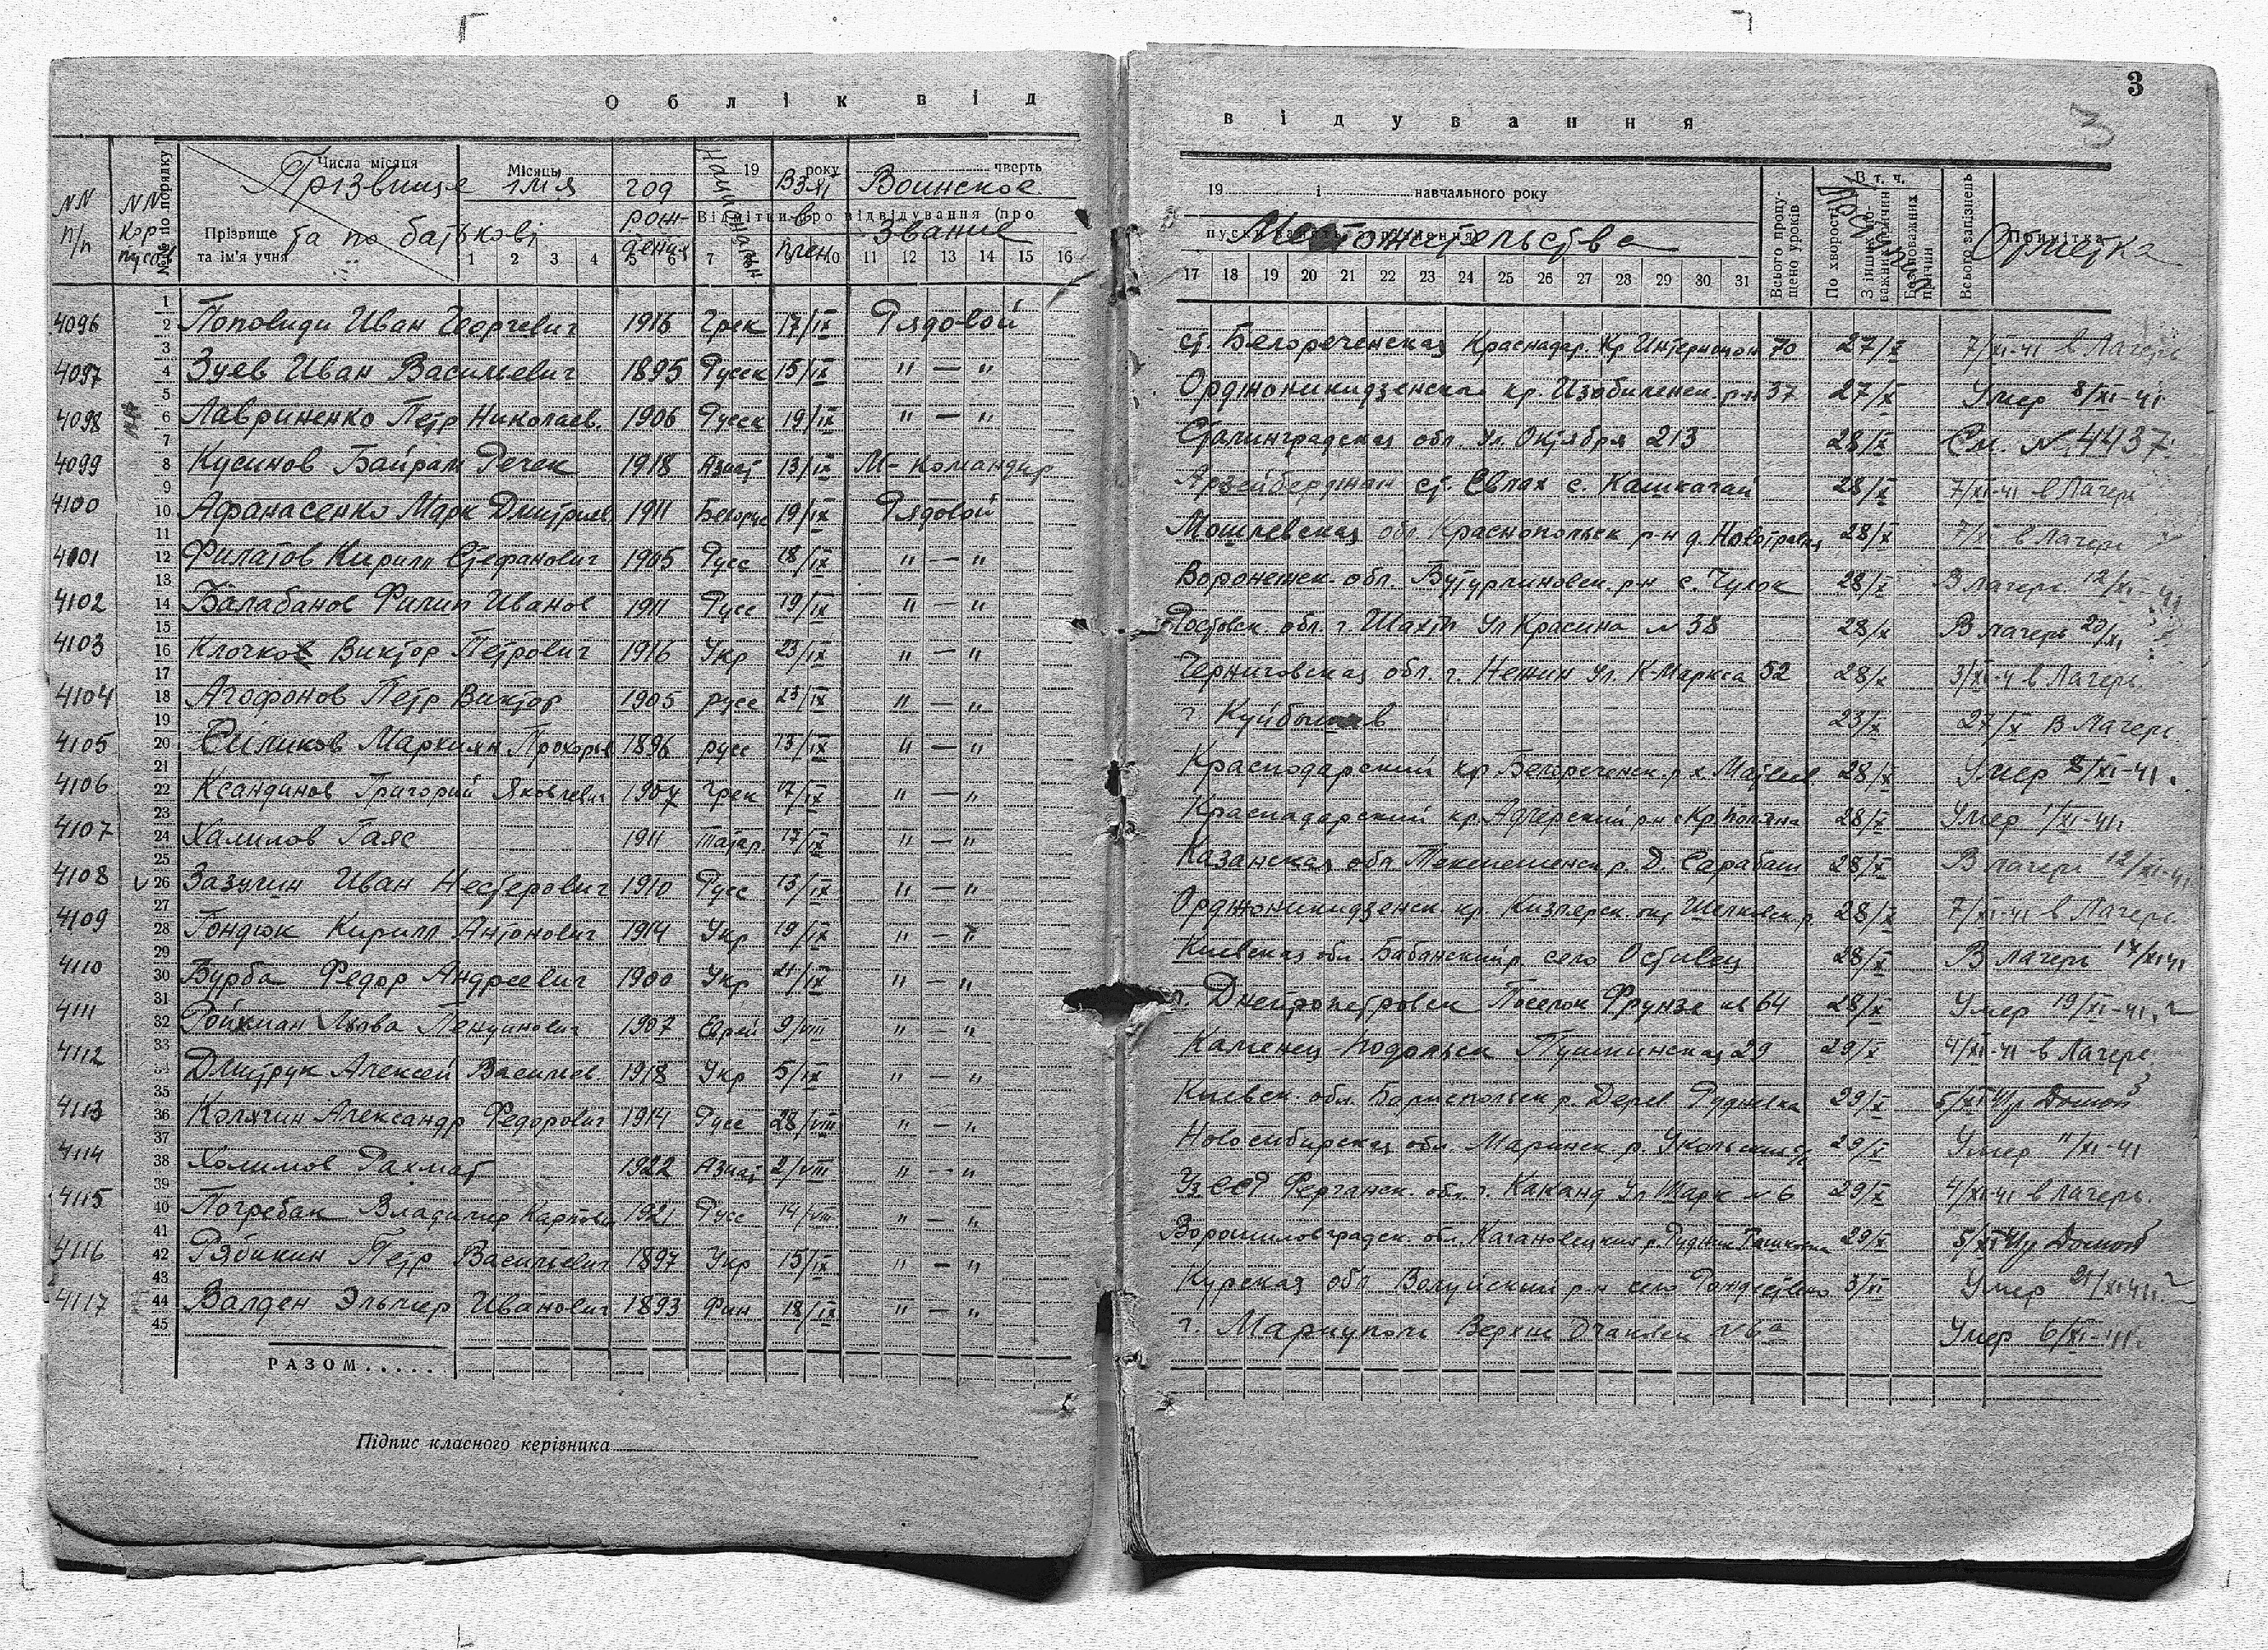 Облік від
відування
3
3
NN п/п
NN корпусов
№№ по порядку
Числа місяця
Прізвище
та ім'я учня
Прізвище імя
та по батькові
Місяць
год рождения
19 року
Взят в плен
чверть
Воинское Звание
Відмітки про відвідування (про
1 2 3 4 5 6 7 9 10 11 12 13 14 15 16
19 і навчального року
Местожительства
17 18 19 20 21 22 23 24 25 26 27 28 29 30 31
Всього пропущено уроків
По хворості
В т. ч.
Всього запізнень
Примітка
Отметка
4096 Поповиди Иван Георгиевич 1916 Грек 17/IX Рядовой ст. Белореченская Краснадар. Кр. Интернацион 70 27/X 7/XI-41 в Лагерь
4097 Зуев Иван Васильевич 1895 Русск 15/IX " — " Орджоникидзенская кр. Изобиленск. р-н 37 27/X Умер 8/XI-41
4098 Лавриненко Петр Николаев. 1906 Русск 19/IX " — " Сталинградская обл. Ул. Октября 213 28/X См. № 4437
4099 Кусинов Байрам Речек 1918 Азиат 13/IX М-командир Арзейберджан ст. Евлах с. Кашкачай 28/X 7/XI-41 в Лагерь
4100 Афанасенко Марк Дмитриев 1911 Белорус 19/IX Рядовой Могилевская обл. Краснопольск р-н д. 28/X 7/XI в Лагерь
4101 Филатов Кирилл Стефанович 1905 Русс 18/IX " — " Воронежск. обл. Бутурлиновск. р-н с. Чулок 28/X В лагерь 12/XI-41
4102 Балабанов Филип Иванов 1911 Русс 19/IX " — " Ростовск обл. г. Шахты Ул Красина № 58 28/X В лагерь 20/XI
4103 Клочко Виктор Петрович 1916 Укр 23/IX " — " Черниговская обл. г. Нежин Ул. К-Маркса 52 28/X 3/XI-41 в Лагерь
4104 Агофонов Петр Виктор 1905 русс 23/IX " — " г. Куйбышев 23/X 27/X в Лагерь
4105 Силиков Маркиян Прохорье 1896 русс 13/IX " — " Краснодарский кр Белореченск. р х. Матвеев 28/X Умер 8/XI-41.
4106 Ксандинов Григорий Яковлевич 1907 Грек 17/IX " — " Краснадарский кр. Адлерский р-н с Кр поляна 28/X Умер 1/XI-41.
4107 Халилов Гаяс 1911 татар. 17/IX " — " Казанская обл. р. Д. Сарабаш 28/X В лагерь 12/XI-41
4108 Зазулин Иван Нестерович 1910 Русс 13/IX " — " Орджоникидзенск. кр. Кизлярск. окр Шелковск. р. 28/X 7/XI-41 в Лагерь
4109 Гондюк Кирилл Антонович 1914 Укр 19/IX " — " Киевская обл. Бабанский р. село Остивец 28/X В лагерь 14/XI 41
4110 Бурба Федор Андреевич 1900 Укр 21/IX " — " г. Днепропетровск Поселок Фрунзе № 64 28/X Умер 19/XI-41.
4111 Ройкман Льова 1907 Еврей 9/VIII " — " Каменец-Подольск Пушкинская 29 29/X 4/XI-41 в Лагерь
4112 Дмитрук Алексей Васильев. 1918 Укр 5/IX " — " Киевск. обл. Бориспольск р. Дерев. Рудневка 29/X 5/XI 41 Домой
4113 Колячин Александр Федорович 1914 Русс 28/VIII " — " Новосибирская обл. Мариинск р. 29/X Умер 11/XI-41
4114 Холимов Рахмат 1922 Азиат 2/VIII " — " Уз ССР Ферганск. обл. г. Каканд Ул Марк № 6 29/X 4/XI-41 в лагерь.
4115 Погребак Владимир Карпович 1921 Русс 14/VIII " — " Ворошиловградск. обл. Кагановецкий р. Рудник 29/X 5/XI 41 Домой
4116 Рябикин Петр Васильевич 1897 Укр 15/IX " — " Курская обл Волуйский р-н село Рождествено 3/XI Умер 21/XI 41.
4117 Валден Эльмер Иванович 1893 Фин 18/IX " — " г. Мариуполь № 6а Умер 6/XI-41.
РАЗОМ.....
Підпис класного керівника